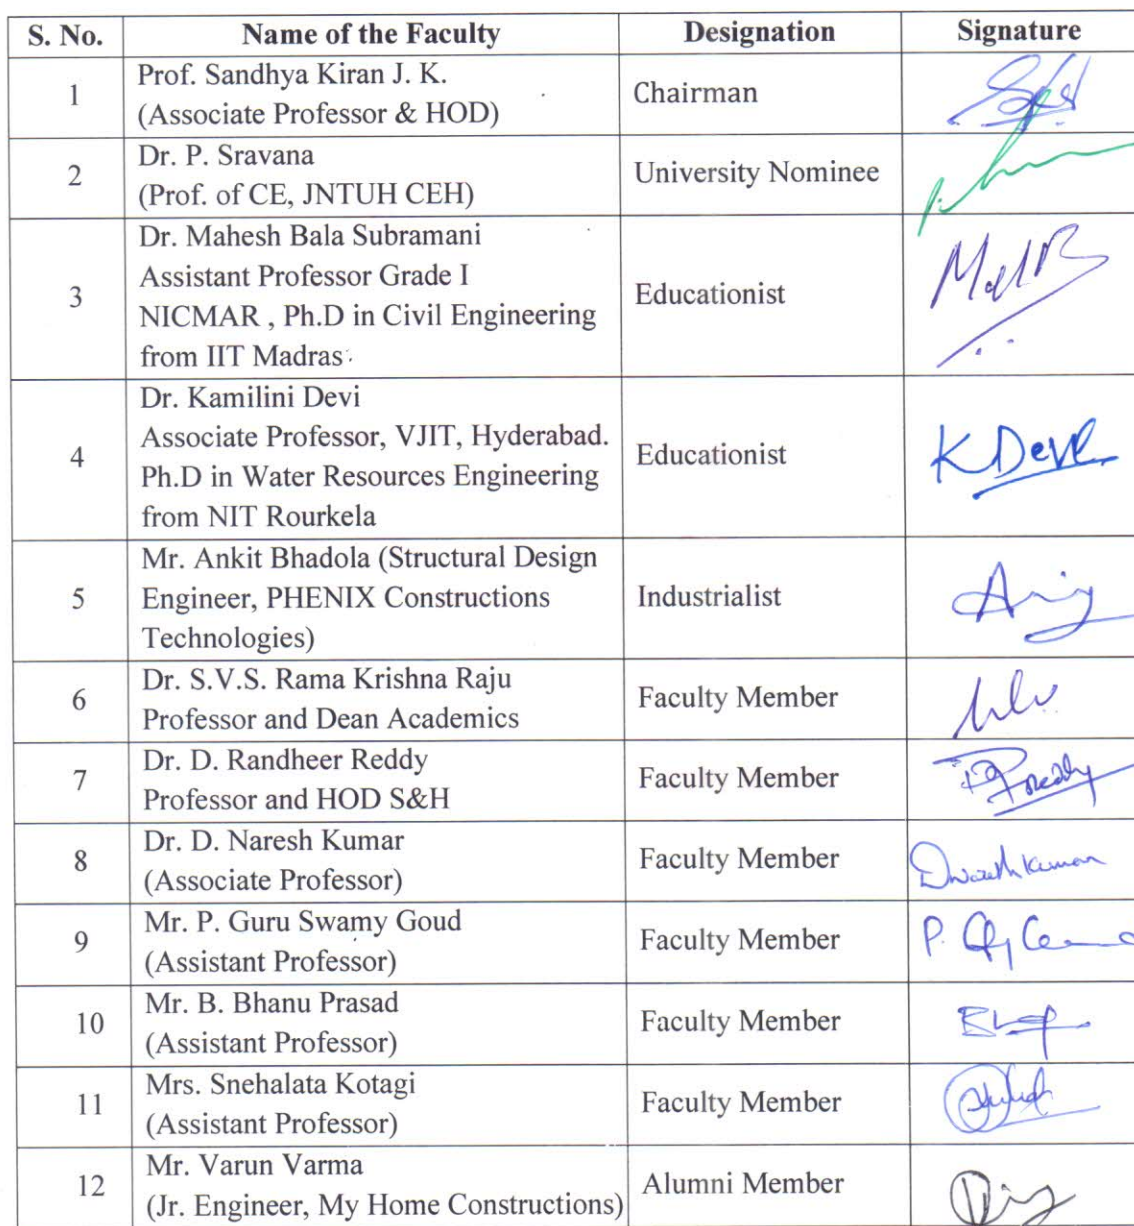 S. No. Name of the Faculty Designation Signature
1 Prof. Sandhya Kiran J. K.
(Associate Professor & HOD) Chairman
2 Dr. P. Sravana
(Prof. of CE, JNTUH CEH) University Nominee
3 Dr. Mahesh Bala Subramani
Assistant Professor Grade I
NICMAR , Ph.D in Civil Engineering
from IIT Madras Educationist
4 Dr. Kamilini Devi
Associate Professor, VJIT, Hyderabad.
Ph.D in Water Resources Engineering
from NIT Rourkela Educationist
K Devi
5 Mr. Ankit Bhadola (Structural Design
Engineer, PHENIX Constructions
Technologies) Industrialist
6 Dr. S.V.S. Rama Krishna Raju
Professor and Dean Academics Faculty Member
7 Dr. D. Randheer Reddy
Professor and HOD S&H Faculty Member
8 Dr. D. Naresh Kumar
(Associate Professor) Faculty Member
9 Mr. P. Guru Swamy Goud
(Assistant Professor) Faculty Member
10 Mr. B. Bhanu Prasad
(Assistant Professor) Faculty Member
11 Mrs. Snehalata Kotagi
(Assistant Professor) Faculty Member
12 Mr. Varun Varma
(Jr. Engineer, My Home Constructions) Alumni Member